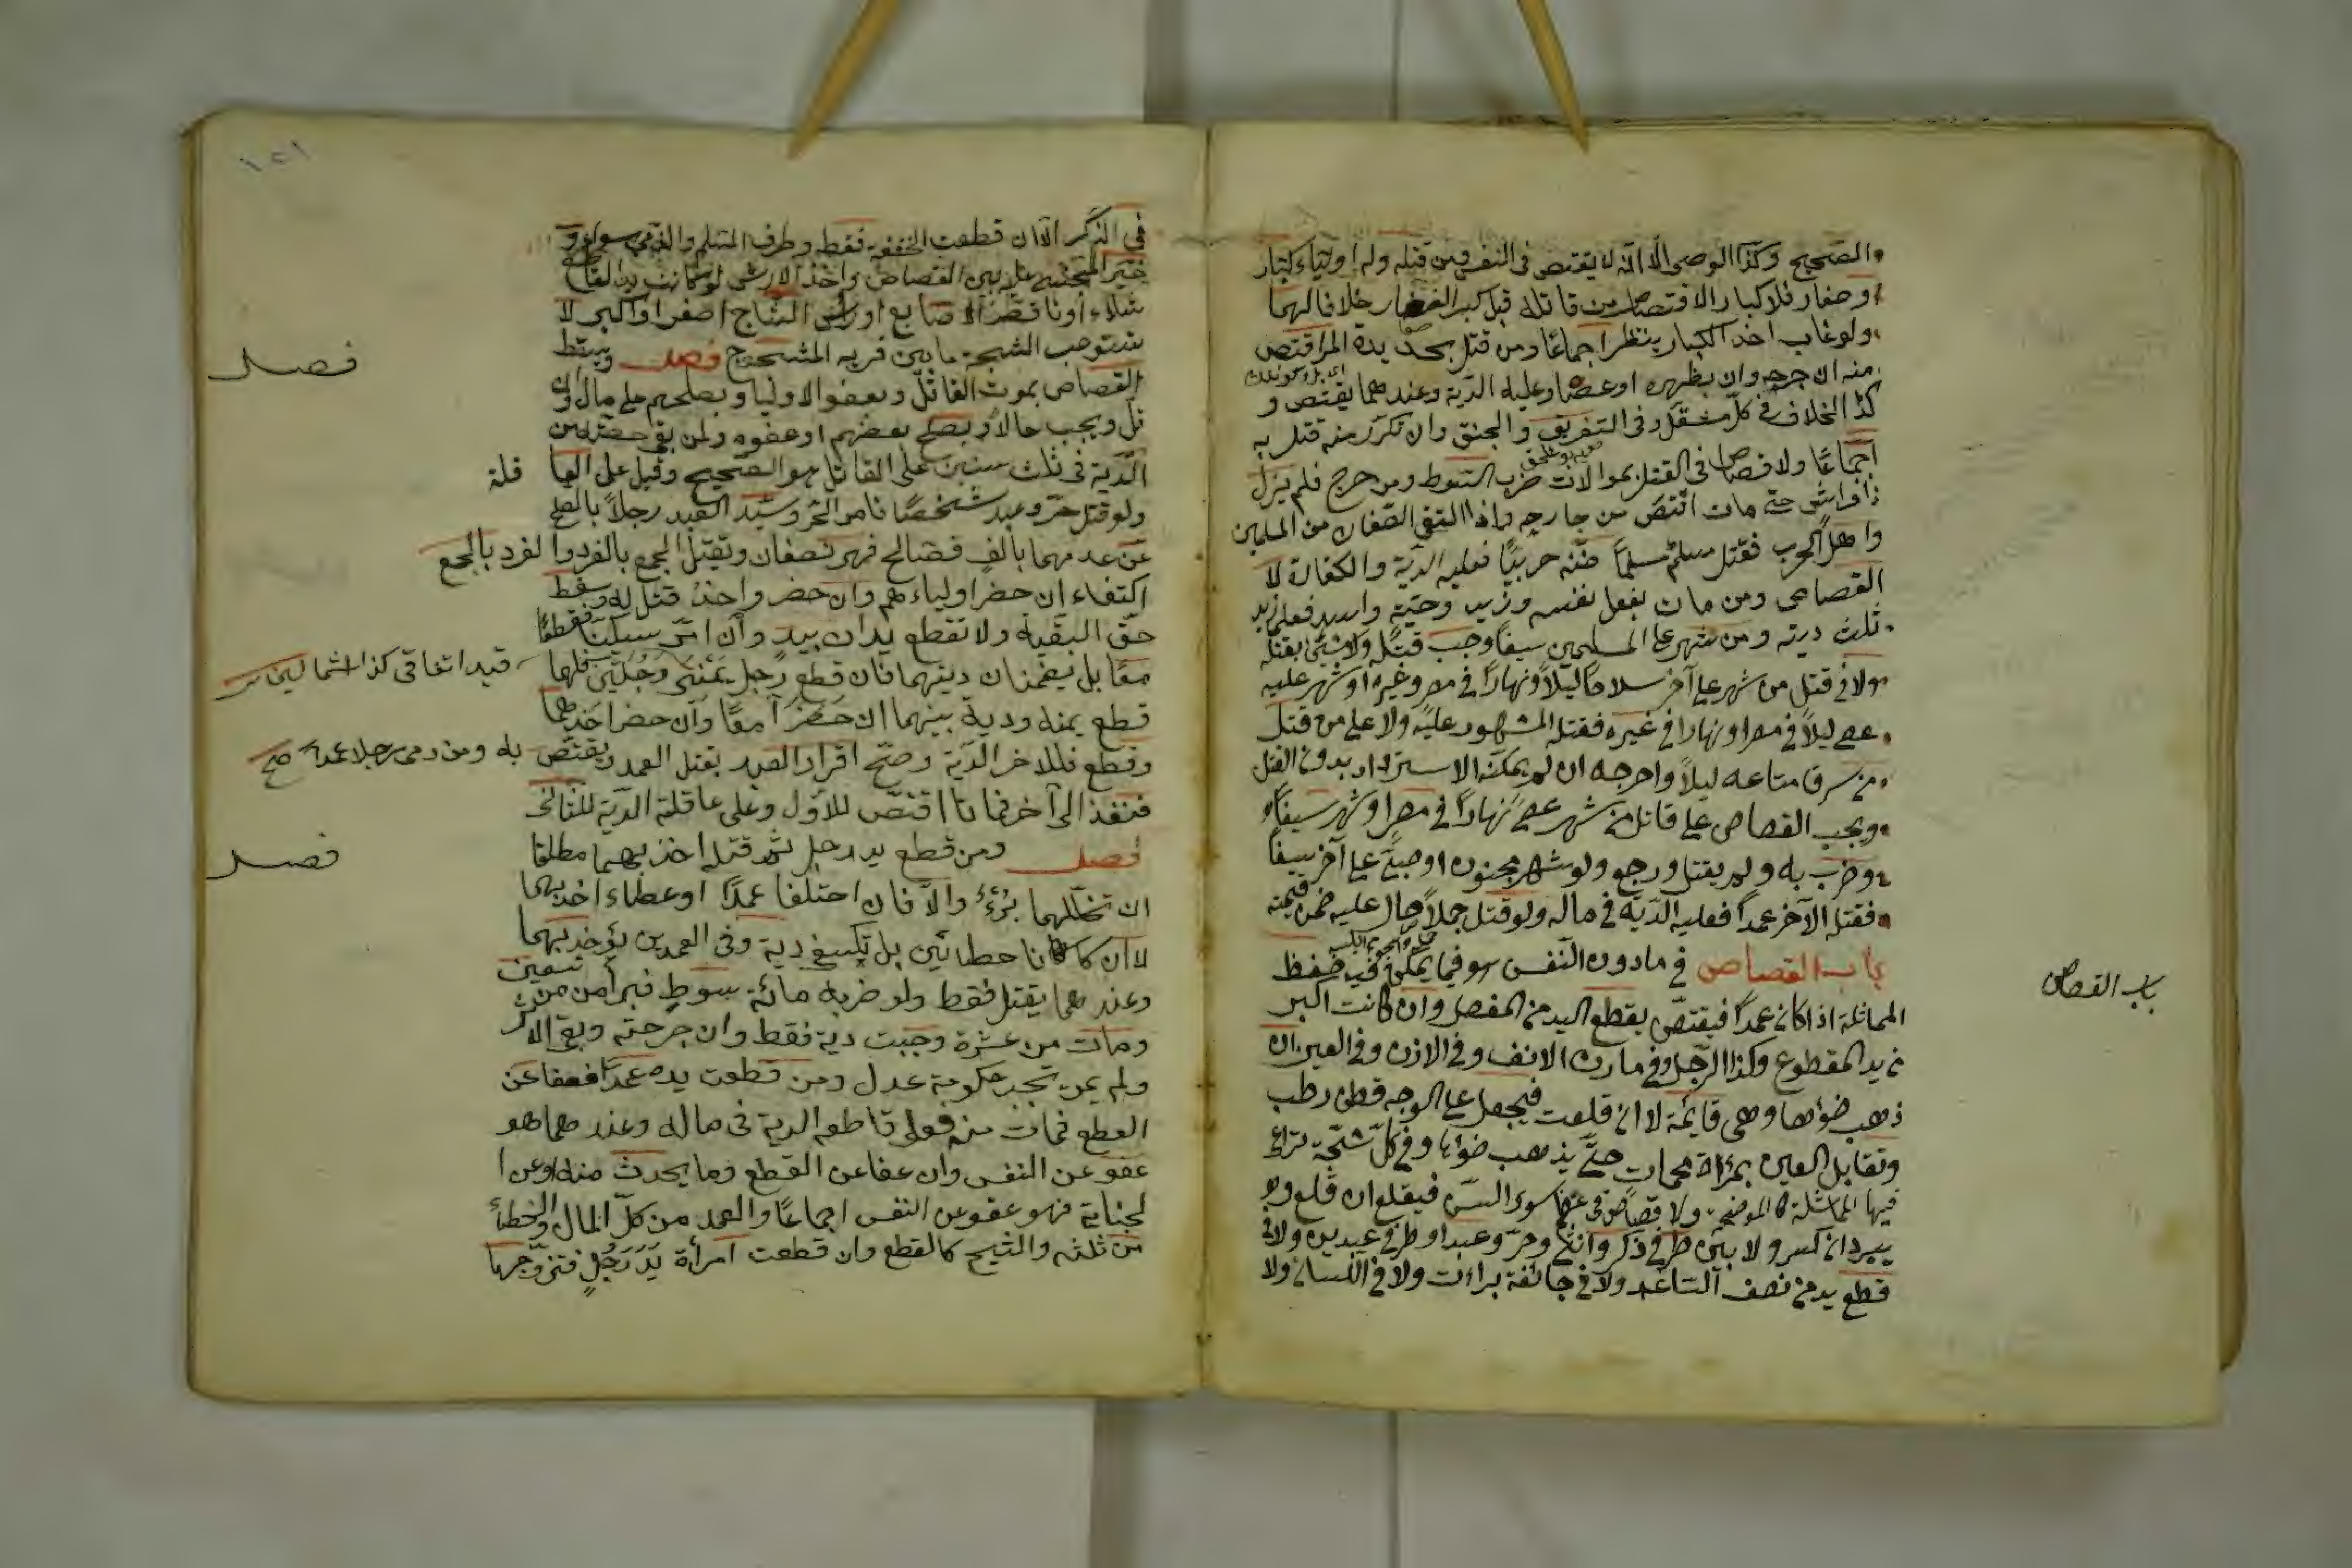 الصحيح وكذا الوصى الا انه لا يقتص فى النفس ومن قتله وله اولياء كبار
وصغار فلا كبار الاقتصاص من قاتله قبل كبر الصغار خلافا لهما
ولو غاب احد الكبار ينتظر اجماعًا ومن قتل بحديدة المر اقتص
منه ان جرحه وان بظهره او عصا وعليه الدّية وعندهما يقتص و
كذا الخلاف فى كلّ مثقل وفى التغريق والخنق وان تكرّر منه قتل به
اجماعًا ولا قصاص فى القتل بموالات ضرب السوط ومن جرح فلم يزل
ذا فراش حتّى مات اقتصّ من جارحه واذا التقى الصّفان من المسلمين
واهل الحرب فقتل مسلم مسلمًا ظنّه حربيًّا فعليه الديّة والكفارة لا
القصاص ومن مات بفعل نفسه وزيد وحيّة واسد فعلى زيد
ثلث ديته ومن شهر على المسلمين سيفًا وجب قتله ولا شئ بقتله
ولا فى قتل من شهر على آخر سلاحًا ليلاً ونهارًا فى مصر وغيره او شهر عليه
عصى ليلاً فى مصر او نهارا فى غيره فقتله المشهور عليه ولا على من قتل
من سرق متاعه ليلاً واخرجه ان لم يمكنه الاسترداد بدون القتل
ويجب القصاص على قاتل من شهر عصى نهارًا فى مصر او شهر سيفًا
وضرب به ولم يقتل ورجع ولو شهر مجنون او صبىّ على آخر سيفًا
فقتله الآخر عمدًا فعليه الدّية فى ماله ولو قتل جملاً صال عليه ضمن قيمته
باب القصاص فى ما دون النّفس هو فيما يمكن فيه حفظ
باب القصاص
المماثلة اذا كان عمدًا فيقتصّ بقطع اليد من المفصل وان كانت اكبر
من يد المقطوع وكذا الرّجل وفى مارن الانف وفى الاذن وفى العين ان
ذهب ضؤها وهى قايمة لا ان قلعت فيجعل على الوجه قطن رطب
وتقابل العين بمرآة محمات حتّى يذهب ضؤها وفى كلّ شجّة تراعى
فيها المماثلة كالموضحة ولا قصاص فى عظم سوى السنّ فيقلع ان قلع و
يبرد ان كسر ولا بين طرفى ذكر وانثى وحرّ وعبد او طرفى عبدين ولا فى
قطع يد من نصف السّاعد ولا فى جائفة براءت ولا فى اللّسان ولا
١٢١
فى الذّكر الّا ان قطعت الحشفة فقط وطرف المسلم والذّمى سواء و
خيّر المجنى عليه بين القصاص واخذ الارش لو كانت يد القاطع
شلّاء او ناقصة الاصابع او رأس الشّاج اصغر او اكبر لا
تستوعب الشّجة ما بين قرنيه المشجوج فصل ويسقط
فصل
القصاص بموت القاتل وبعفو الاوليا وبصلحهم على مال وان
قل ويجب حالاً وبصلح بعضهم او عفوه ولمن بقى حصته من
الدّية فى ثلث سنين على القاتل هو الصّحيح وقيل على العا قلة
ولو قتل حرّ وعبد شخصًا فامر الحر وسيّد العبد رجلاً بالصلح
عن عدمهما بالف فصالح فهو نصفان ويقتل الجمع بالفرد والفرد بالجمع
اكتفاء ان حضر اولياءهم وان حضر واحد قتل له وسقط
حقّ البقيّة ولا تقطع يدان بيد وان امرّ سكّينًا فقطعًا
معًا بل يضمنان ديتهما فان قطع رجل يمنى رجلين فلهما
قيد اتفاقى كذا الشمالين
قطع يمنه ودية بينهما ان حضرا معًا وان حضر احدهما
وقطع فللاخر الدّية وصحّ اقرار العبد بقتل العمد ويقتصّ به ومن رمى رجلا عمداً صح
فنفذ الى آخر فماتا اقتصّ للاوّل وعلى عاقلة الدّية للثّانى
فصل ومن قطع يد رجل ثمّ قتله اخذ بهما مطلقا
فصل
ان تخلّلهما بُرْءٌ والّا فان اختلفا عمدًا او خطاء اخذ بهما
لا ان كانا خطائين بل تكفى دية وفى العمدين يؤخذ بهما
وعندهما يقتل فقط ولو ضربه مائة سوط فبرأ من تسعين
ومات من عشرة وجبت دية فقط وان جرحته وبقى الاثر
ولم يمت تجب حكومة عدل ومن قطعت يده عمدًا فعفا عن
القطع فمات منه فعلى قاطعه الدية فى ماله وعندهما هو
عفو عن النفس وان عفا عن القطع وما يحدث منه او عن ا
لجناية فهو عفو عن النفس اجماعًا والعمد من كلّ المال والخطأ
من ثلثه والشّج كالقطع وان قطعت امرأة يَدَ رَجُلٍ فتزوّجها